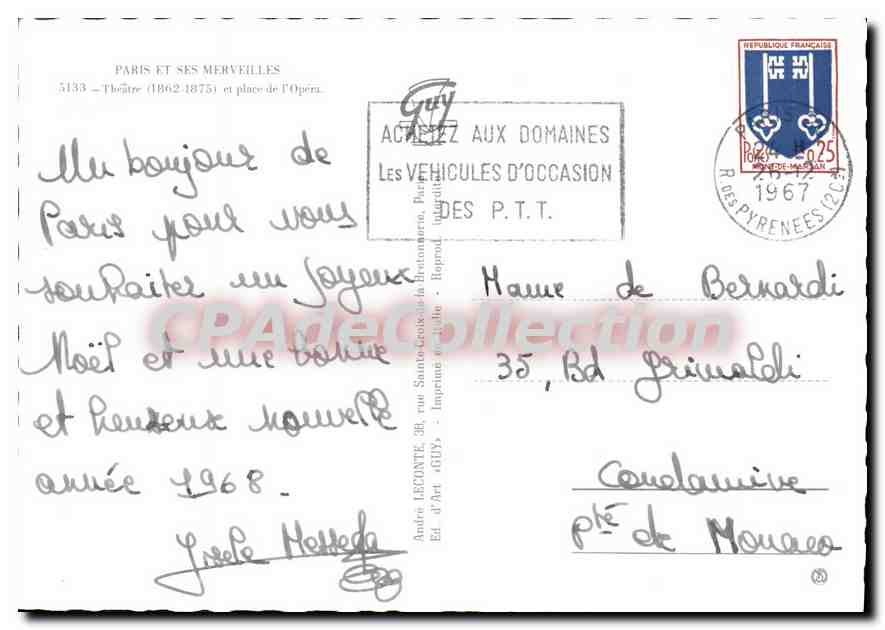 PARIS ET SES MERVEILLES
5133 – Théâtre (1862-1875) et place de l'Opéra.
Un bonjour de
Paris pour vous
souhaiter un Joyeux
Noël et une bonne
et heureuse nouvelle
année 1968.
Guy
ACHETEZ AUX DOMAINES
Les VEHICULES D'OCCASION
DES P.T.T.
REPUBLIQUE FRANÇAISE
0,25
MONT-DE-MARSAN
26-12
1967
R. DES PYRENEES (20e)
André LECONTE, 38, rue Sainte-Croix-de-la-Bretonnerie, Paris
Ed. d'Art «GUY» - Imprimé en Italie - Reprod. interdite
Mame de Bernardi
35, Bd Grimaldi
Condamine
Pté de Monaco
CPAdeCollection